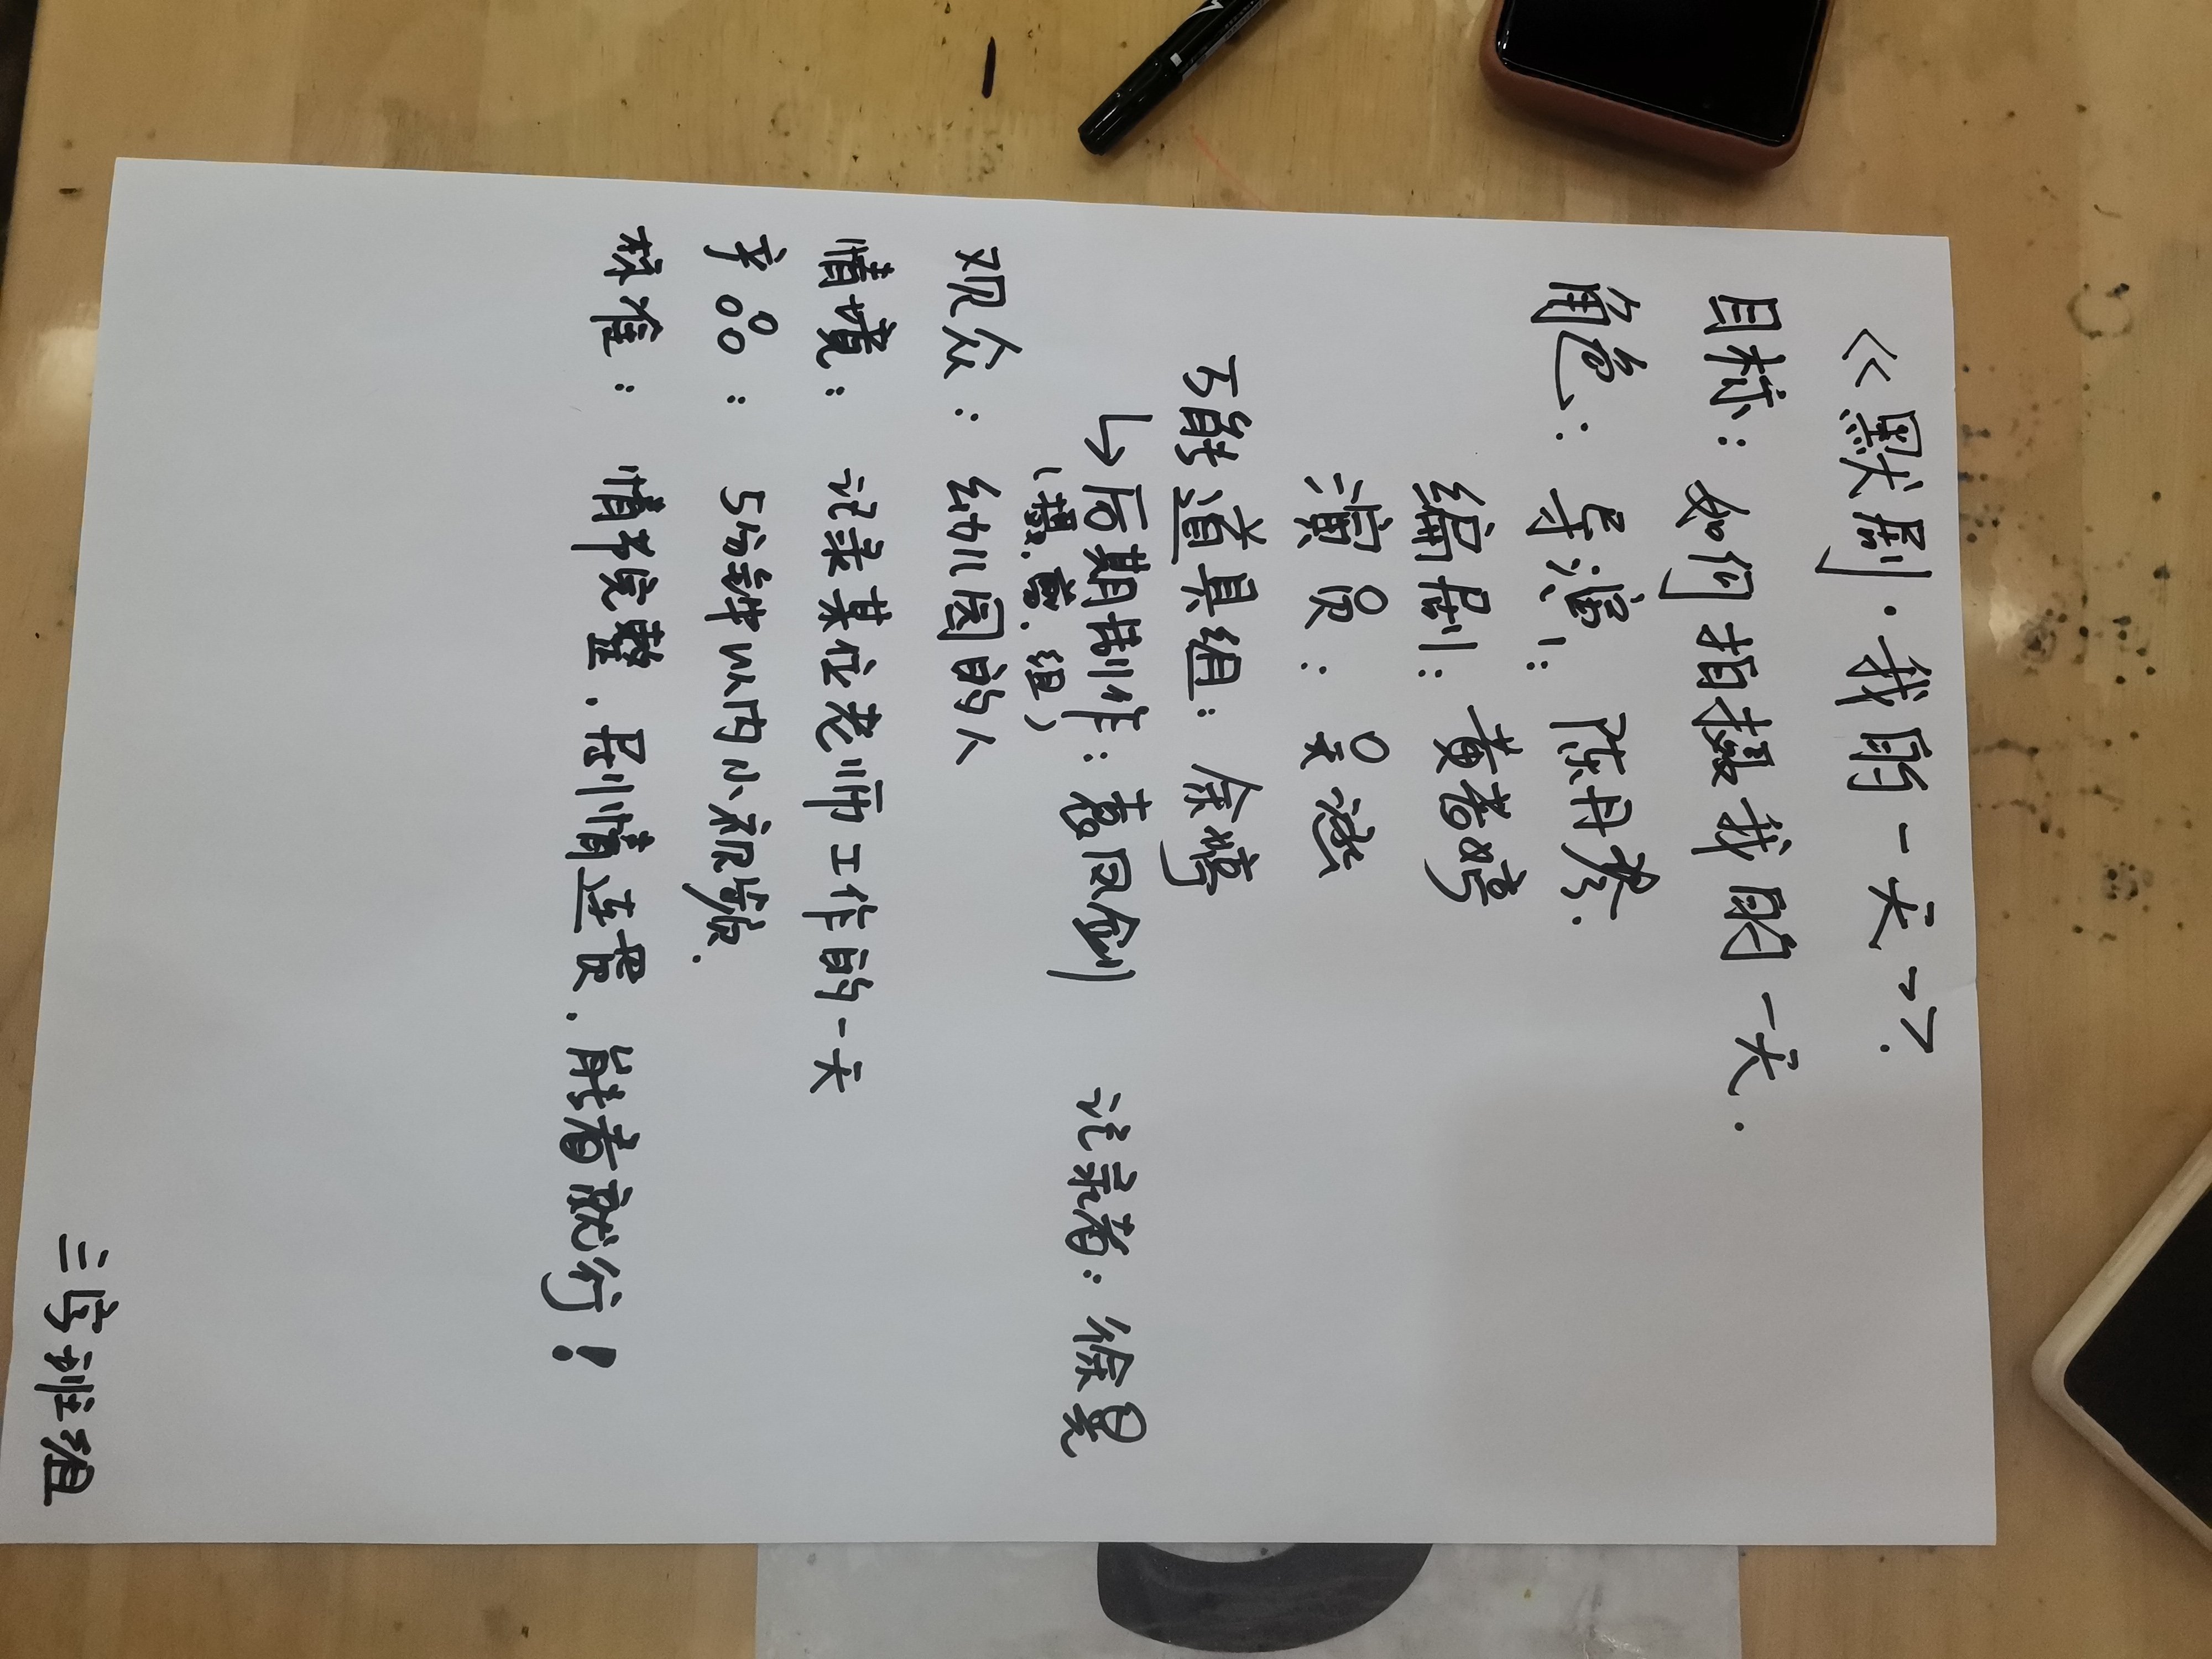 《默剧·我的一天》.
目标：如何拍摄我的一天.
角色：导演：陈丹黎.
编剧：黄春婷
演员：吴燕
万能道具组：余婷
↳后期制作：袁凤剑 记录者：徐晃
(摄、音、组)
观众：幼儿园的人
情境：记录某位老师工作的一天
产品：5分钟以内小视频.
标准：情节完整.剧情连贯.能看就行!
三字班组